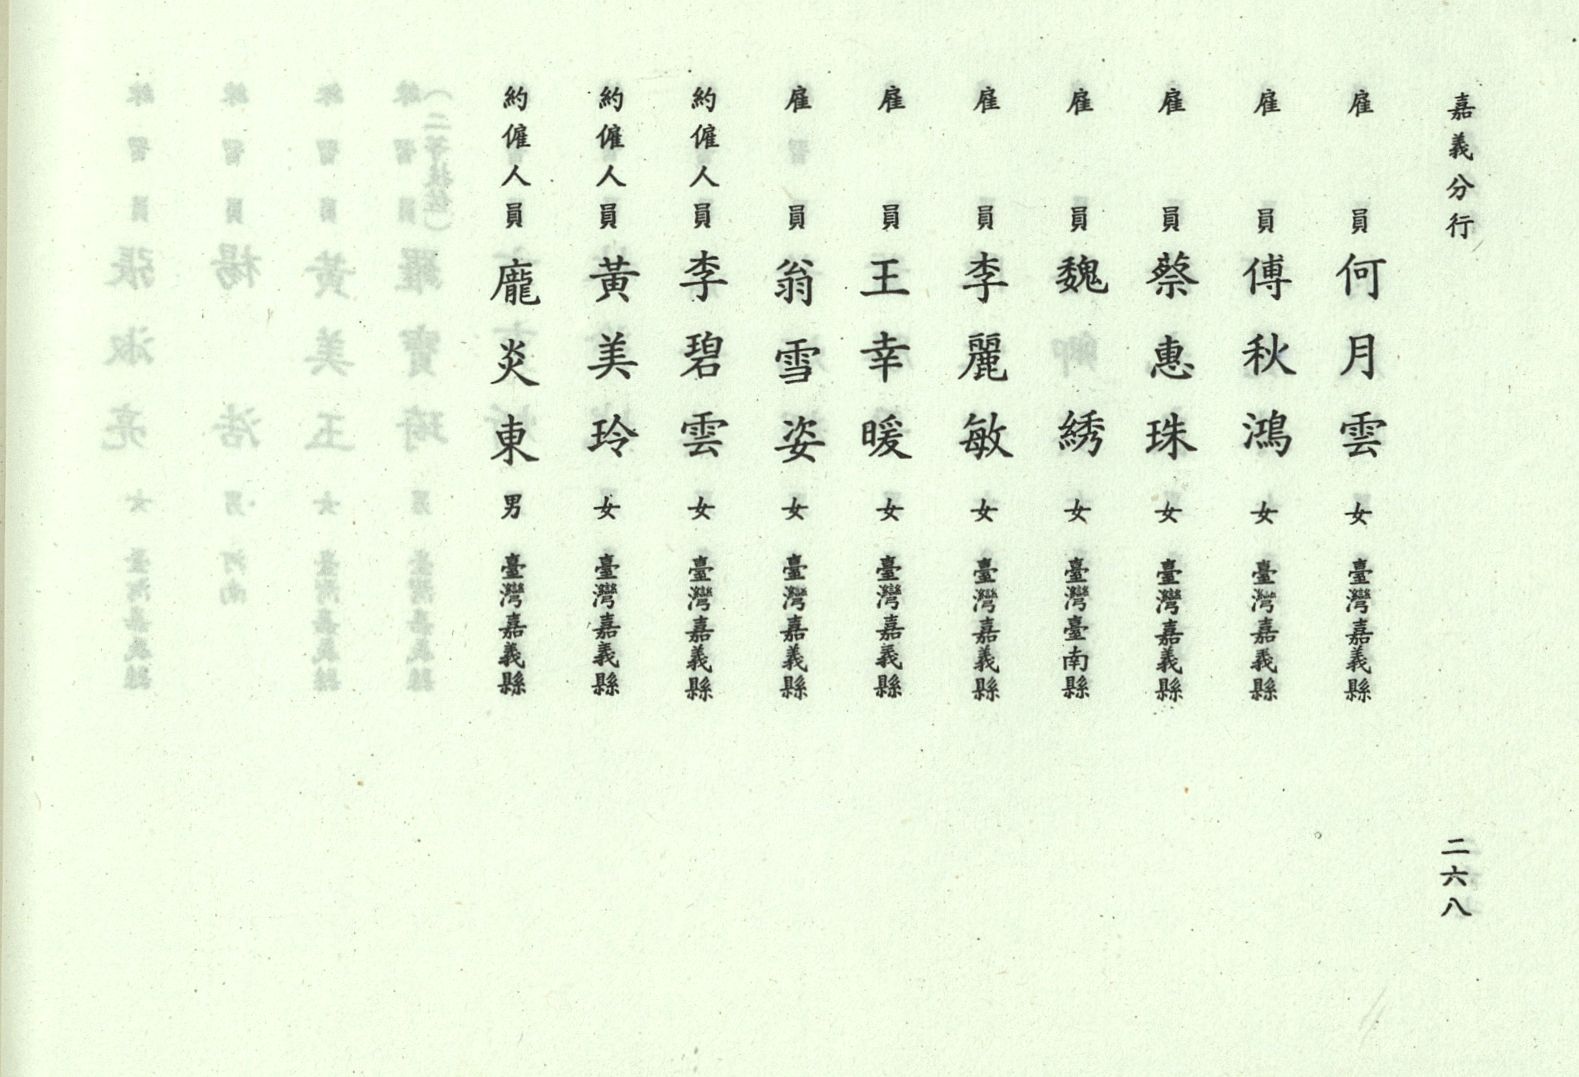 嘉義分行
雇員 何月雲 女 臺灣嘉義縣
雇員 傅秋鴻 女 臺灣嘉義縣
雇員 蔡惠珠 女 臺灣嘉義縣
雇員 魏綉 女 臺灣臺南縣
雇員 李麗敏 女 臺灣嘉義縣
雇員 王幸暖 女 臺灣嘉義縣
雇員 翁雪姿 女 臺灣嘉義縣
約僱人員 李碧雲 女 臺灣嘉義縣
約僱人員 黃美玲 女 臺灣嘉義縣
約僱人員 龐炎東 男 臺灣嘉義縣
二六八